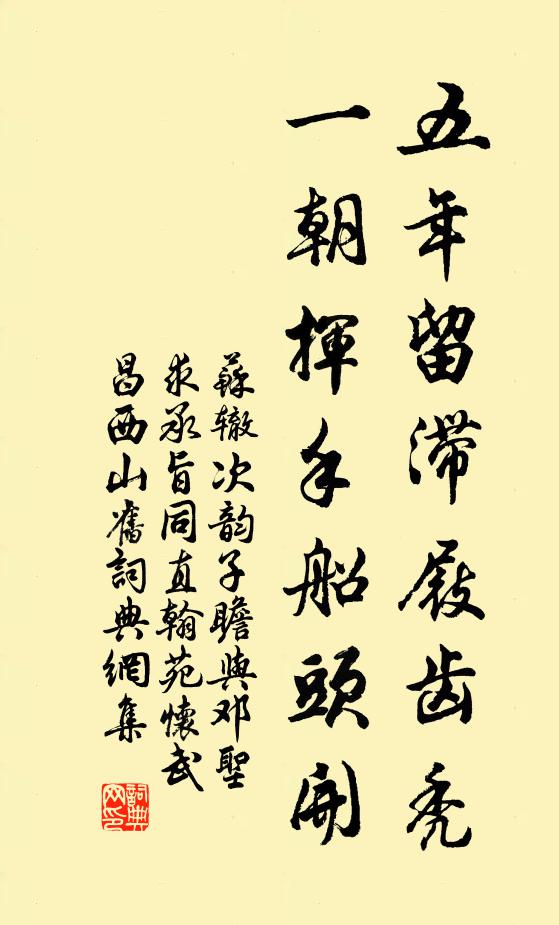 五年留滞屐齿秃
一朝揮手船頭開
蘇辙次韵子瞻與邓聖
求承旨同直翰苑懷武
昌西山舊詞典網集
詞典網印